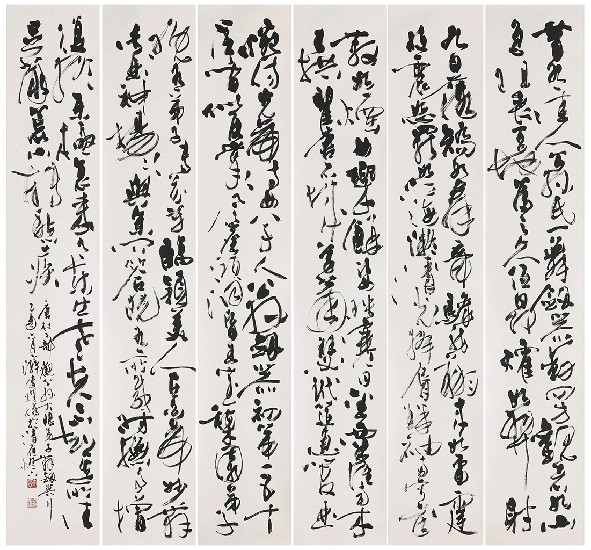 昔有佳人公孫氏一舞劍器動四方觀者如山
色沮喪天地為之久低昂㸌如羿射
九日落矯如群帝驂龍翔來如雷霆
收震怒罷如江海凝清光絳唇珠袖兩寂寞
散如煙女樂餘姿映寒日金粟堆南木
拱瞿唐石城草蕭瑟玳筵急管曲
惋傷先帝侍女八千人公孫劍器初第一五十
年間似反掌風塵澒洞昏王室梨園弟子
晚有弟子傳芬芳臨潁美人在白帝妙舞
此曲神揚揚與余問答既有以感時撫事增
復終樂極哀來月東出老夫不知其所往
足繭荒山轉愁疾
唐杜工部觀公孫大娘弟子舞劍器行